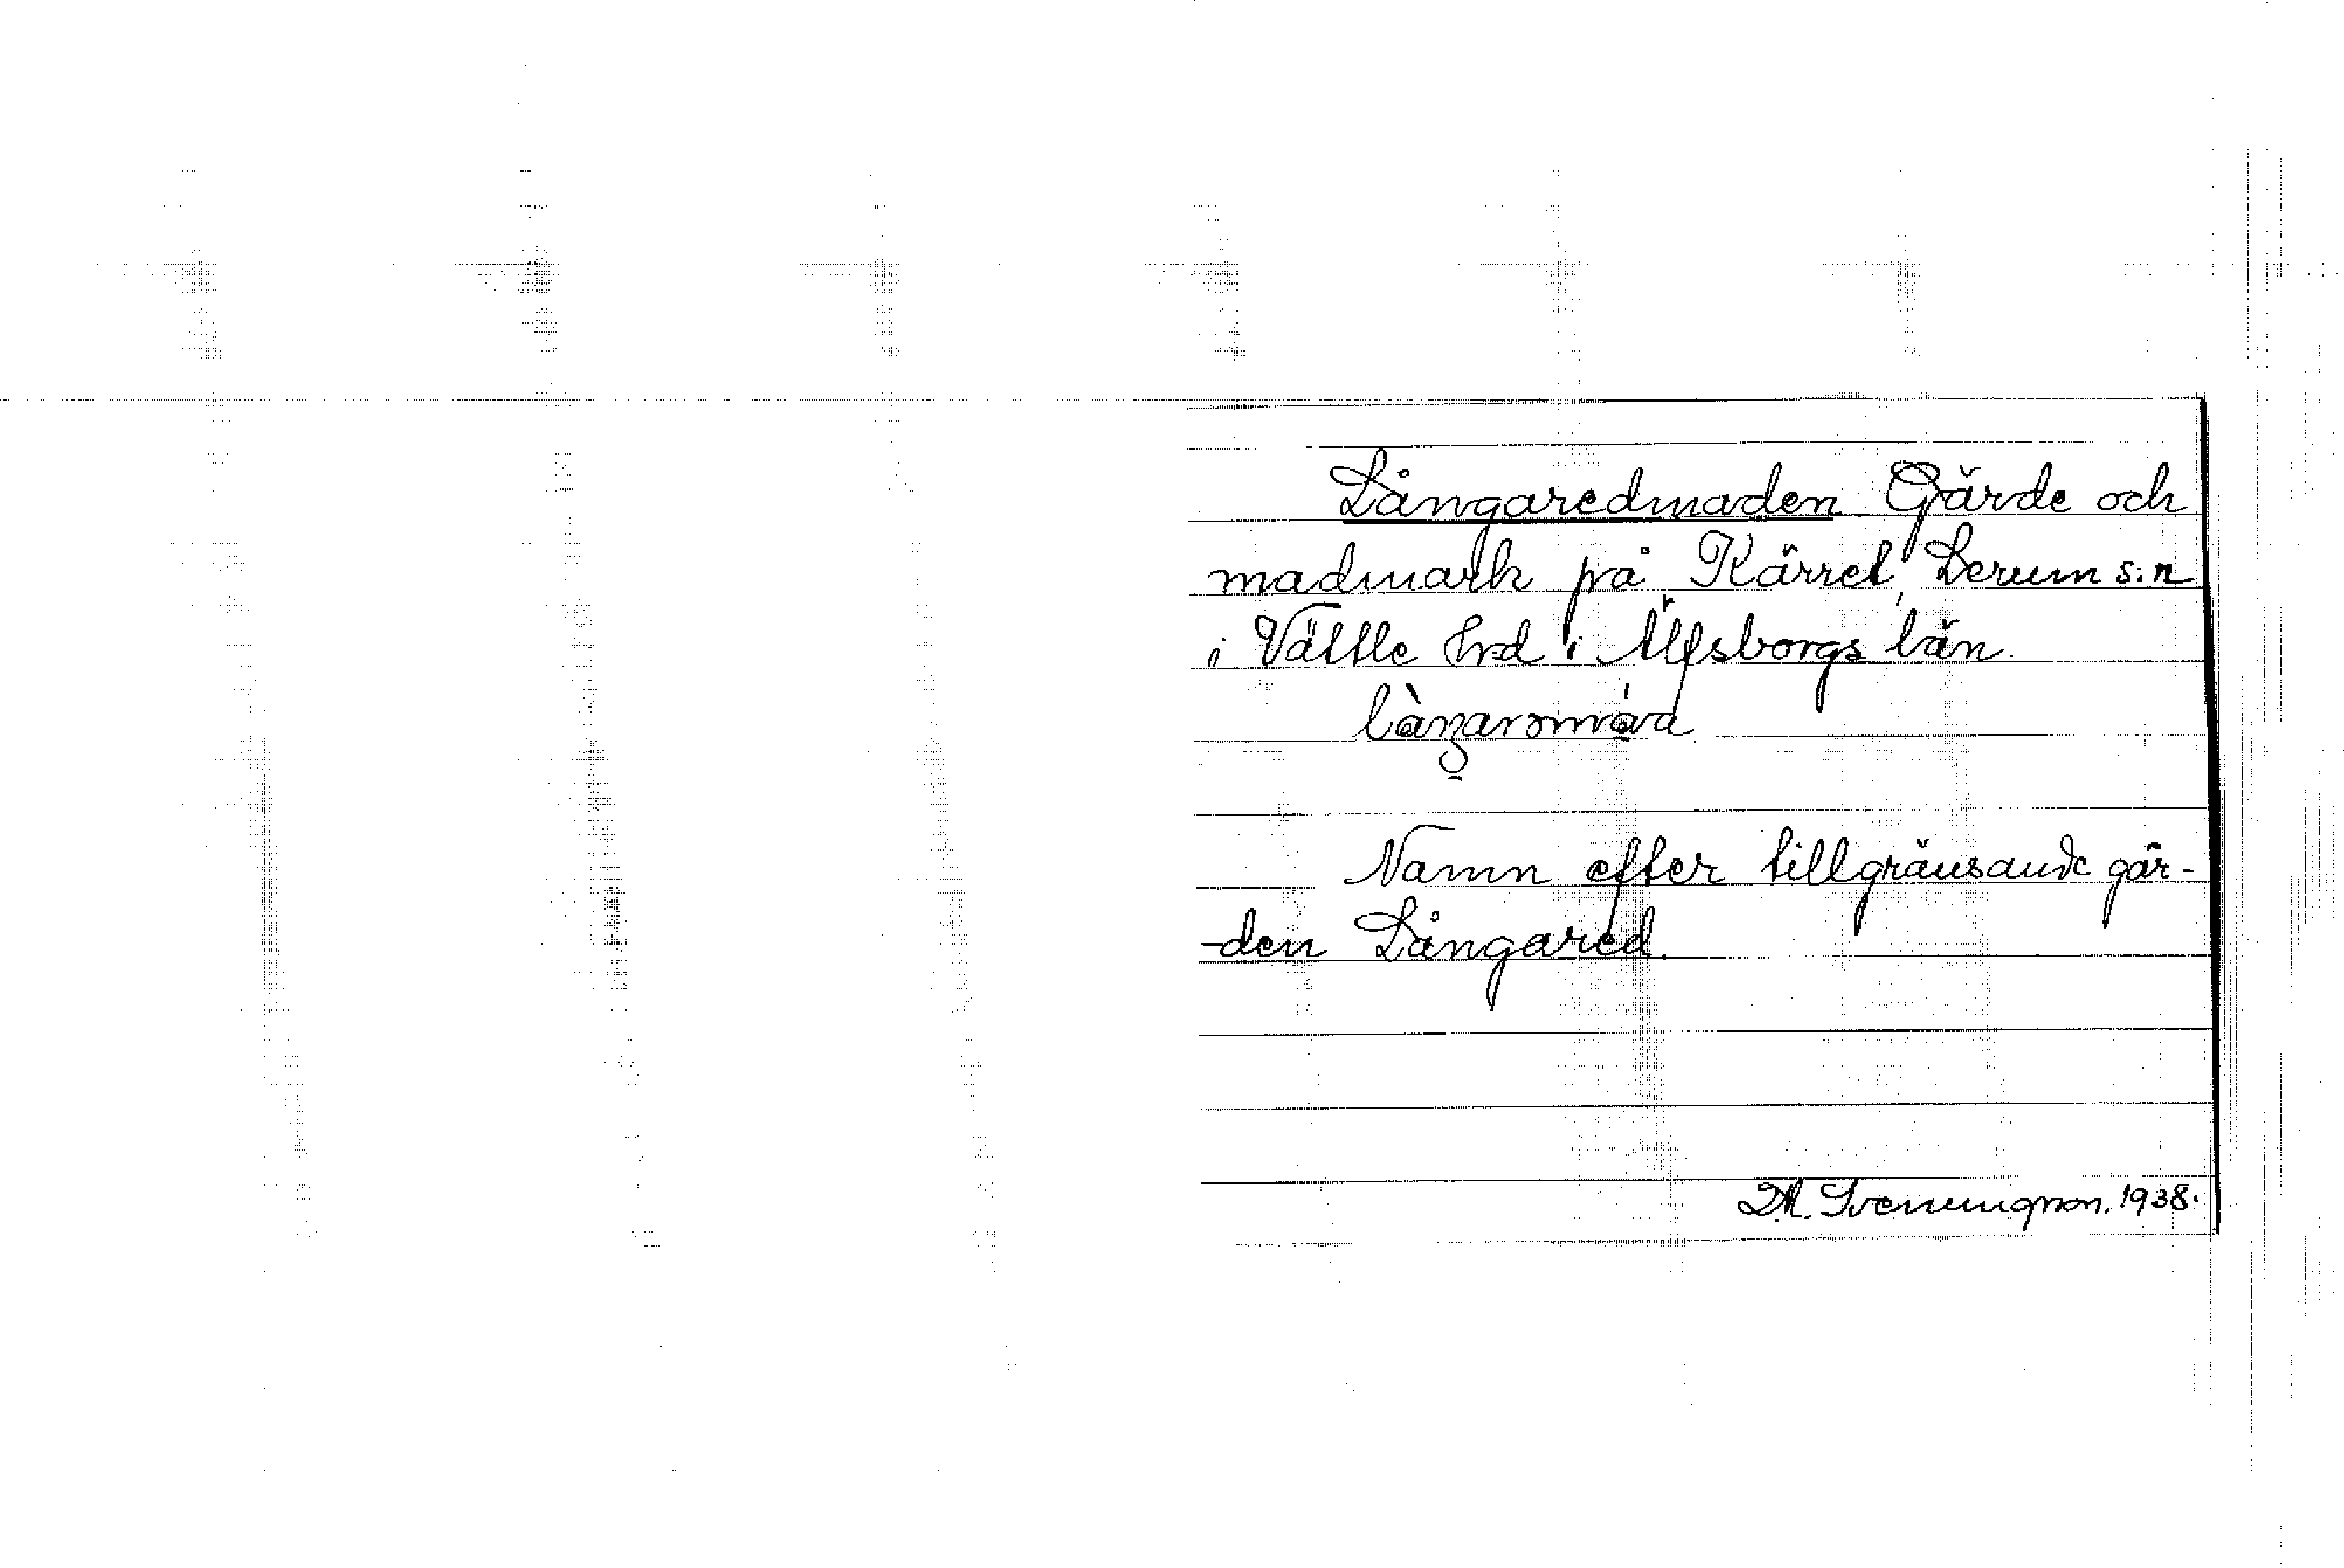 Långaredmaden Gärde och
madmark på Kärret, Lerum s:n
i Vättle hrd i Älfsborgs län.
Namn efter tillgränsande går-
-den Långared.
D.A. Svenningson, 1938.